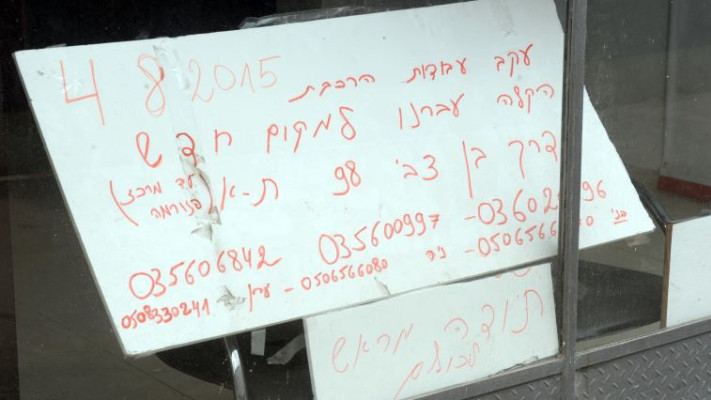 4 8 2015
עקב עבודות הרכבת
הקלה עברנו למקום חדש
דרך בן צבי 98 ת-א (ליד מרכז
הנזרמה)
035606842 035600997 -03602 96
0508330241 ערן - 0506566080 ניר - 0506566 0 בני
תודה מראש
לכולם